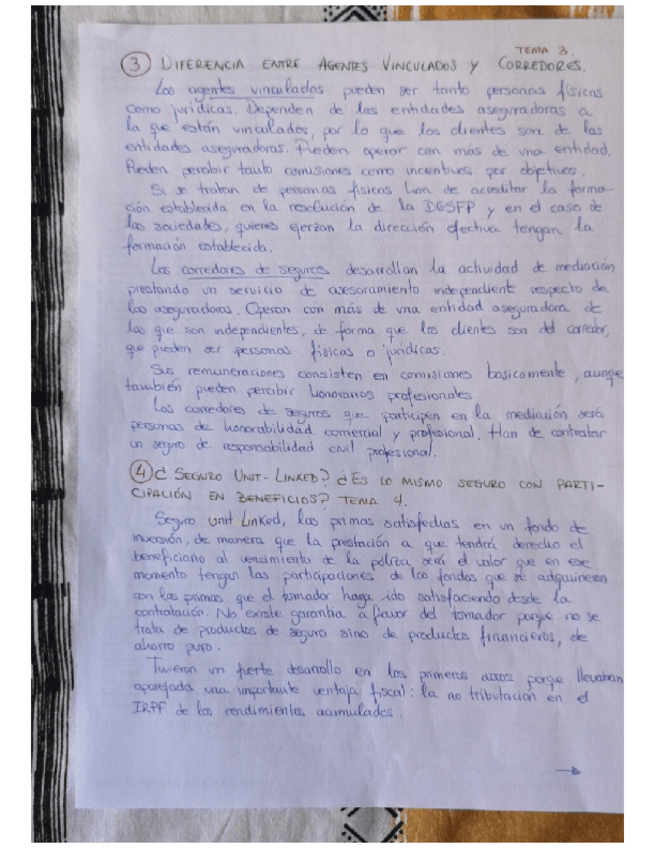 TEMA 3.
③ DIFERENCIA ENTRE AGENTES VINCULADOS Y CORREDORES.
Los agentes vinculados pueden ser tanto personas físicas
como jurídicas. Dependen de las entidades aseguradoras a
la que están vinculados, por lo que los clientes son de las
entidades aseguradoras. Pueden operar con más de una entidad.
Pueden percibir tanto comisiones como incentivos por objetivos.
Si se tratan de personas físicas han de acreditar la forma-
ción establecida en la resolución de la DGSFP y en el caso de
las sociedades, quienes ejerzan la dirección efectiva tengan la
formación establecida.
Los corredores de seguros desarrollan la actividad de mediación
prestando un servicio de asesoramiento independiente respecto de
las aseguradoras. Operan con más de una entidad aseguradora de
las que son independientes, de forma que los clientes son del corredor,
que pueden ser personas físicas o jurídicas.
Sus remuneraciones consisten en comisiones basicamente, aunque
también pueden percibir honorarios profesionales.
Los corredores de seguros que participen en la mediación será
personas de honorabilidad comercial y profesional. Han de contratar
un seguro de responsabilidad civil profesional.
④ ¿SEGURO UNIT-LINKED? ¿ES LO MISMO SEGURO CON PARTI-
CIPACIÓN EN BENEFICIOS? TEMA 4.
Seguro Unit Linked, las primas satisfechas en un fondo de
inversión, de manera que la prestación a que tendrá derecho el
beneficiario al vencimiento de la póliza será el valor que en ese
momento tengan las participaciones de los fondos que se adquirieron
con las primas que el tomador haya ido satisfaciendo desde la
contratación. No existe garantía a favor del tomador porque no se
trata de productos de seguro sino de productos financieros, de
ahorro puro.
Tuvieron un fuerte desarrollo en los primeros años porque llevaban
aparejada una importante ventaja fiscal: la no tributación en el
IRPF de los rendimientos acumulados.